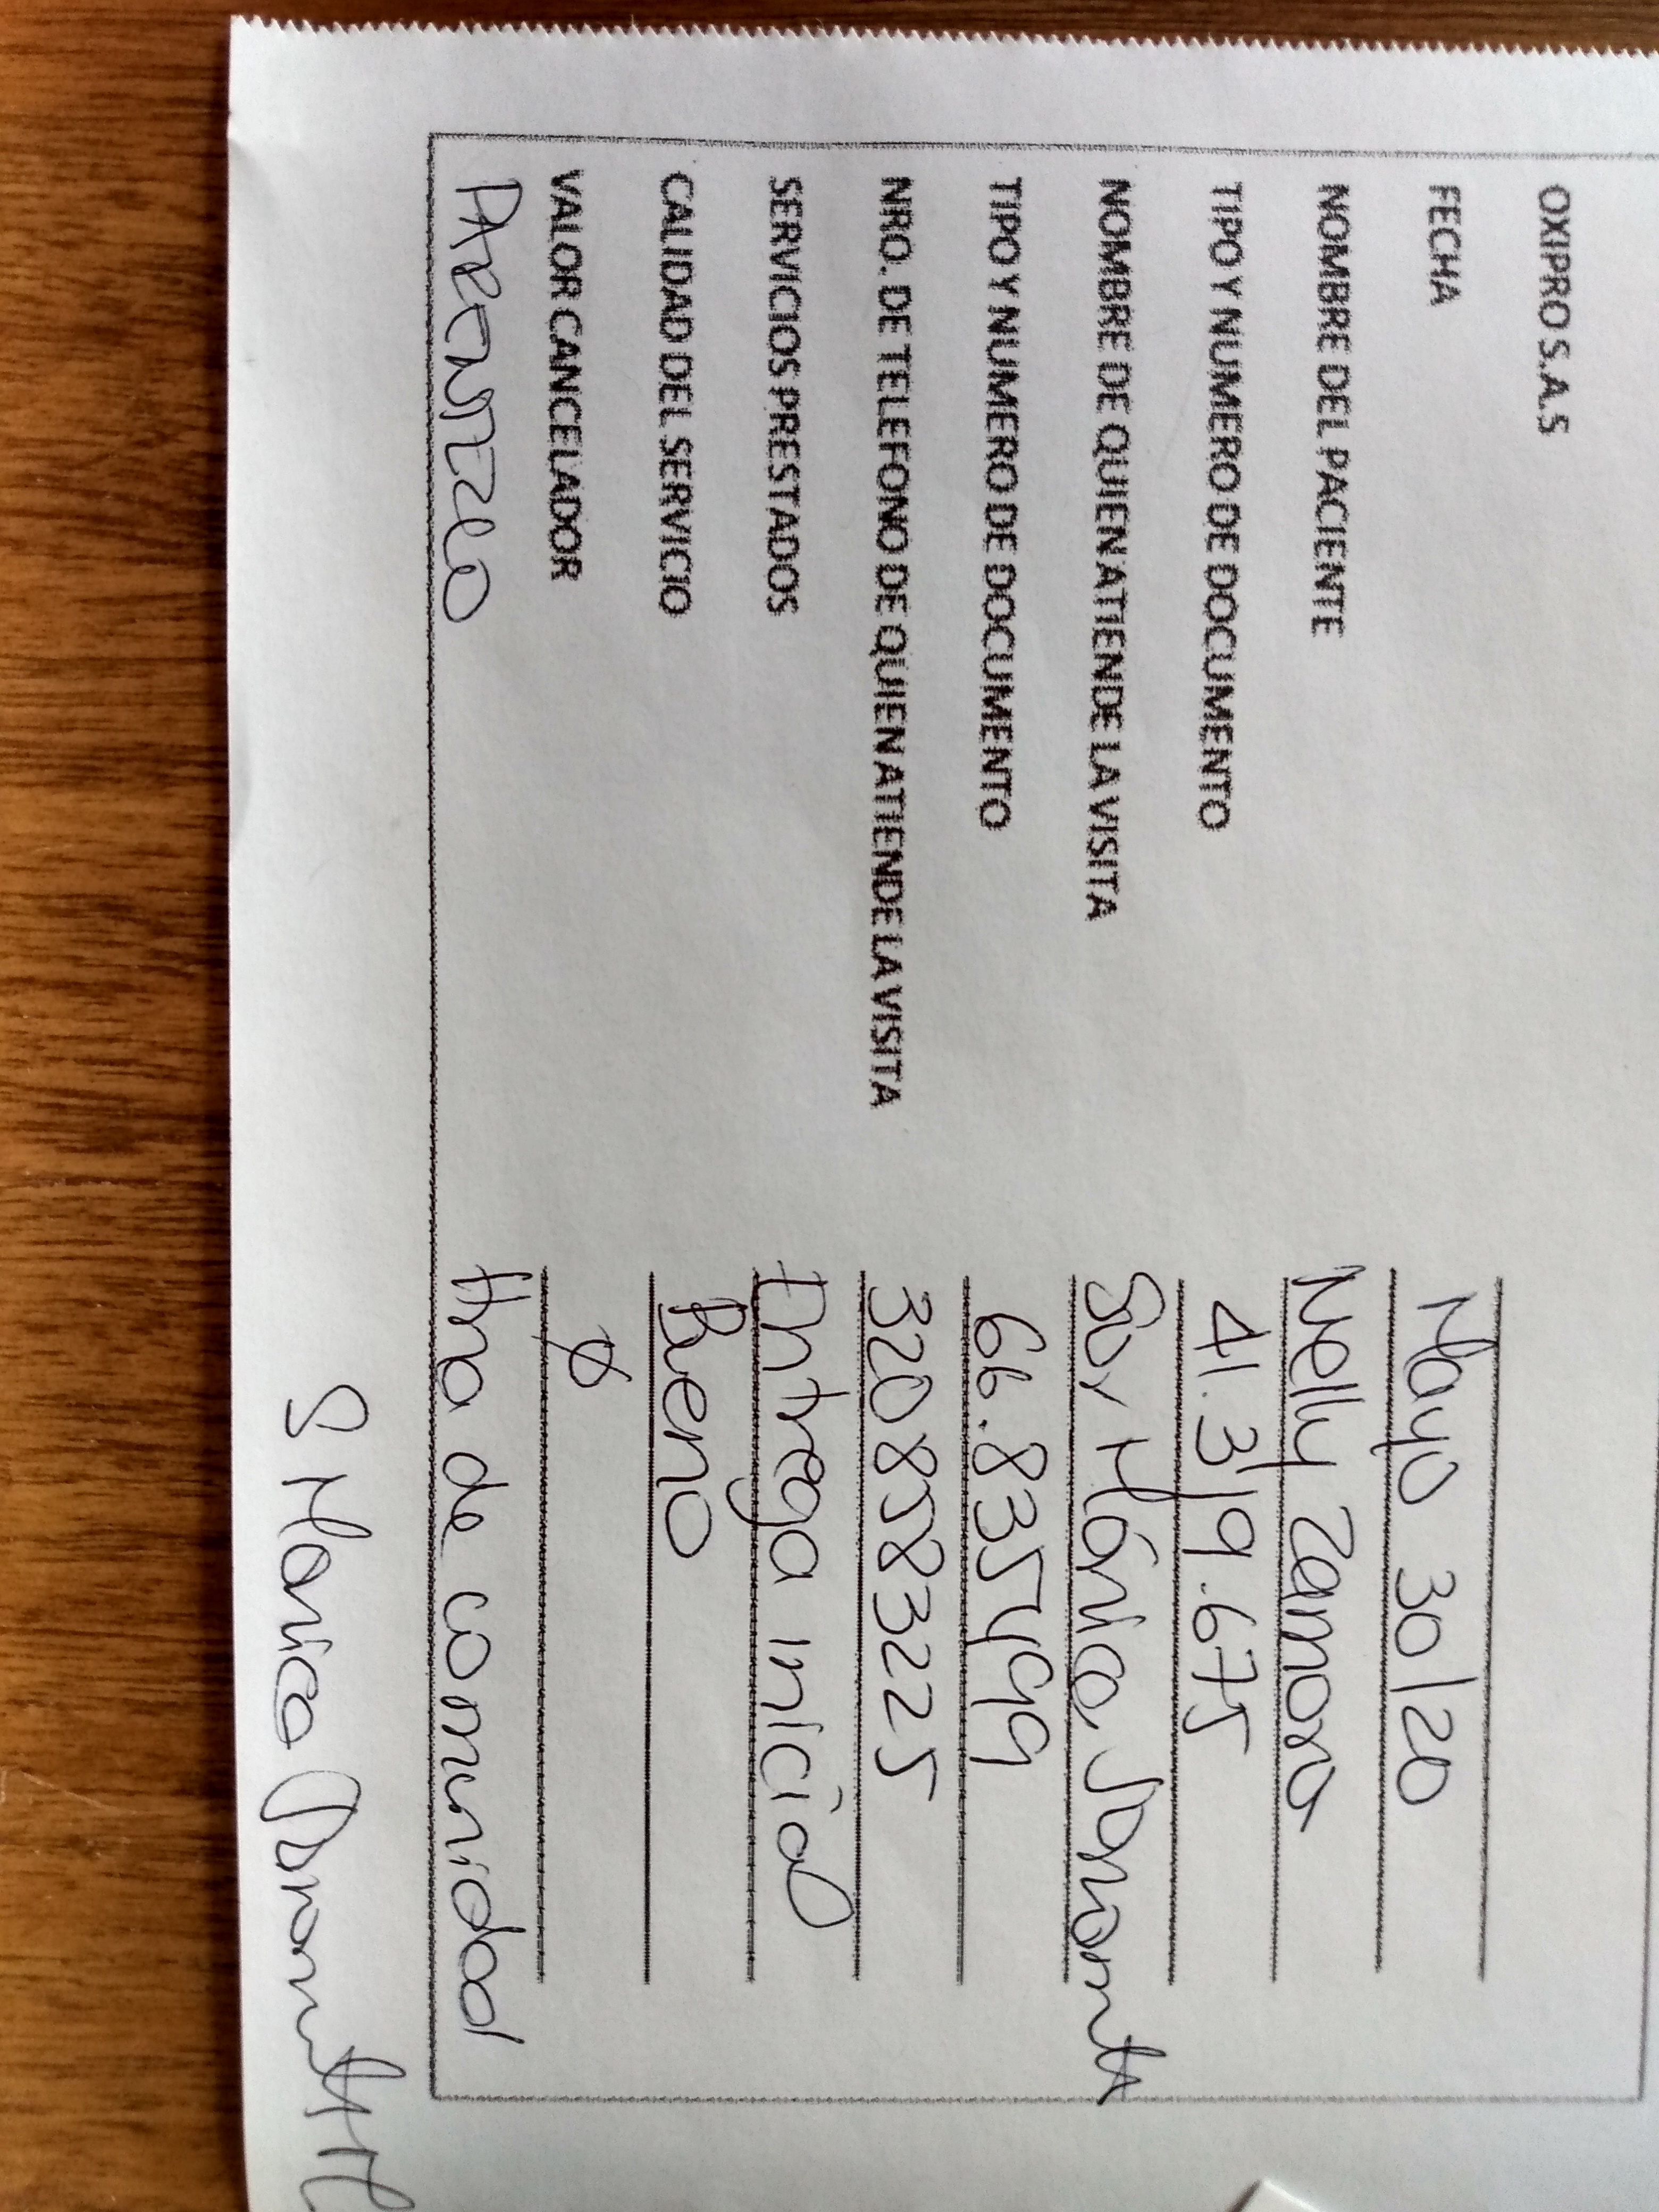 OXIPRO S.A.S
FECHA Mayo 30/20
NOMBRE DEL PACIENTE Nelly Zamora
TIPO Y NUMERO DE DOCUMENTO 41.319.675
NOMBRE DE QUIEN ATIENDE LA VISITA Sor Mónica
TIPO Y NUMERO DE DOCUMENTO 66.835499
NRO. DE TELEFONO DE QUIEN ATIENDE LA VISITA 320 8583225
SERVICIOS PRESTADOS Entrega inicial
CALIDAD DEL SERVICIO Bueno
VALOR CANCELADOR
PARENTEZCO Hna de comunidad
S Monica